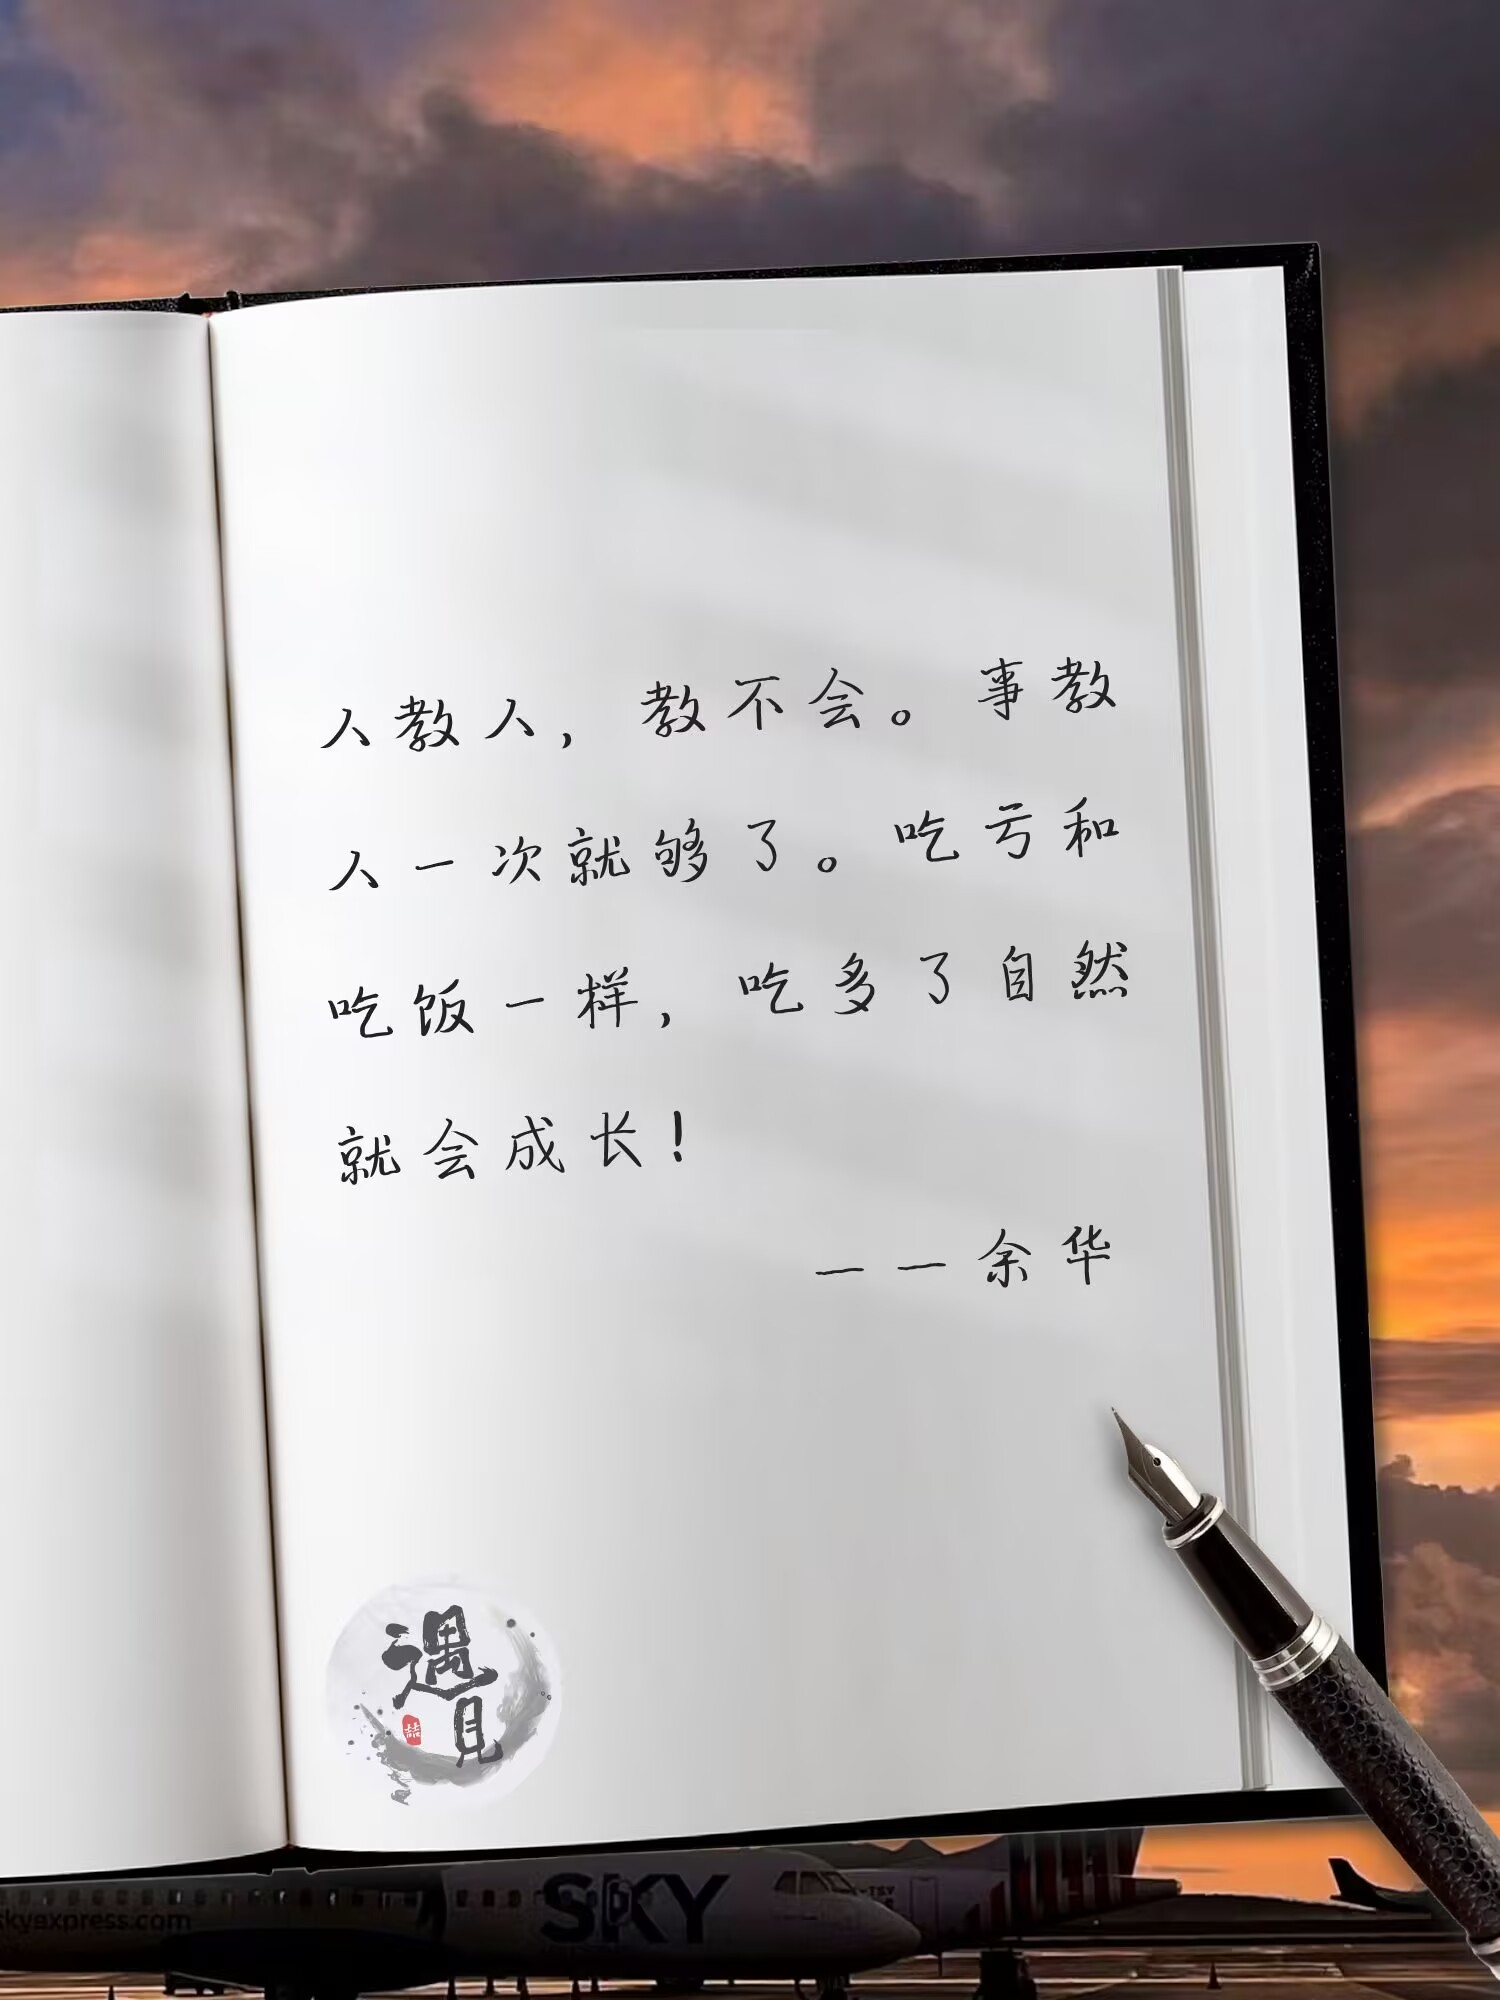 人教人，教不会。事教
人一次就够了。吃亏和
吃饭一样，吃多了自然
就会成长！
——余华
遇
見
喆
SKY
skyexpress.com